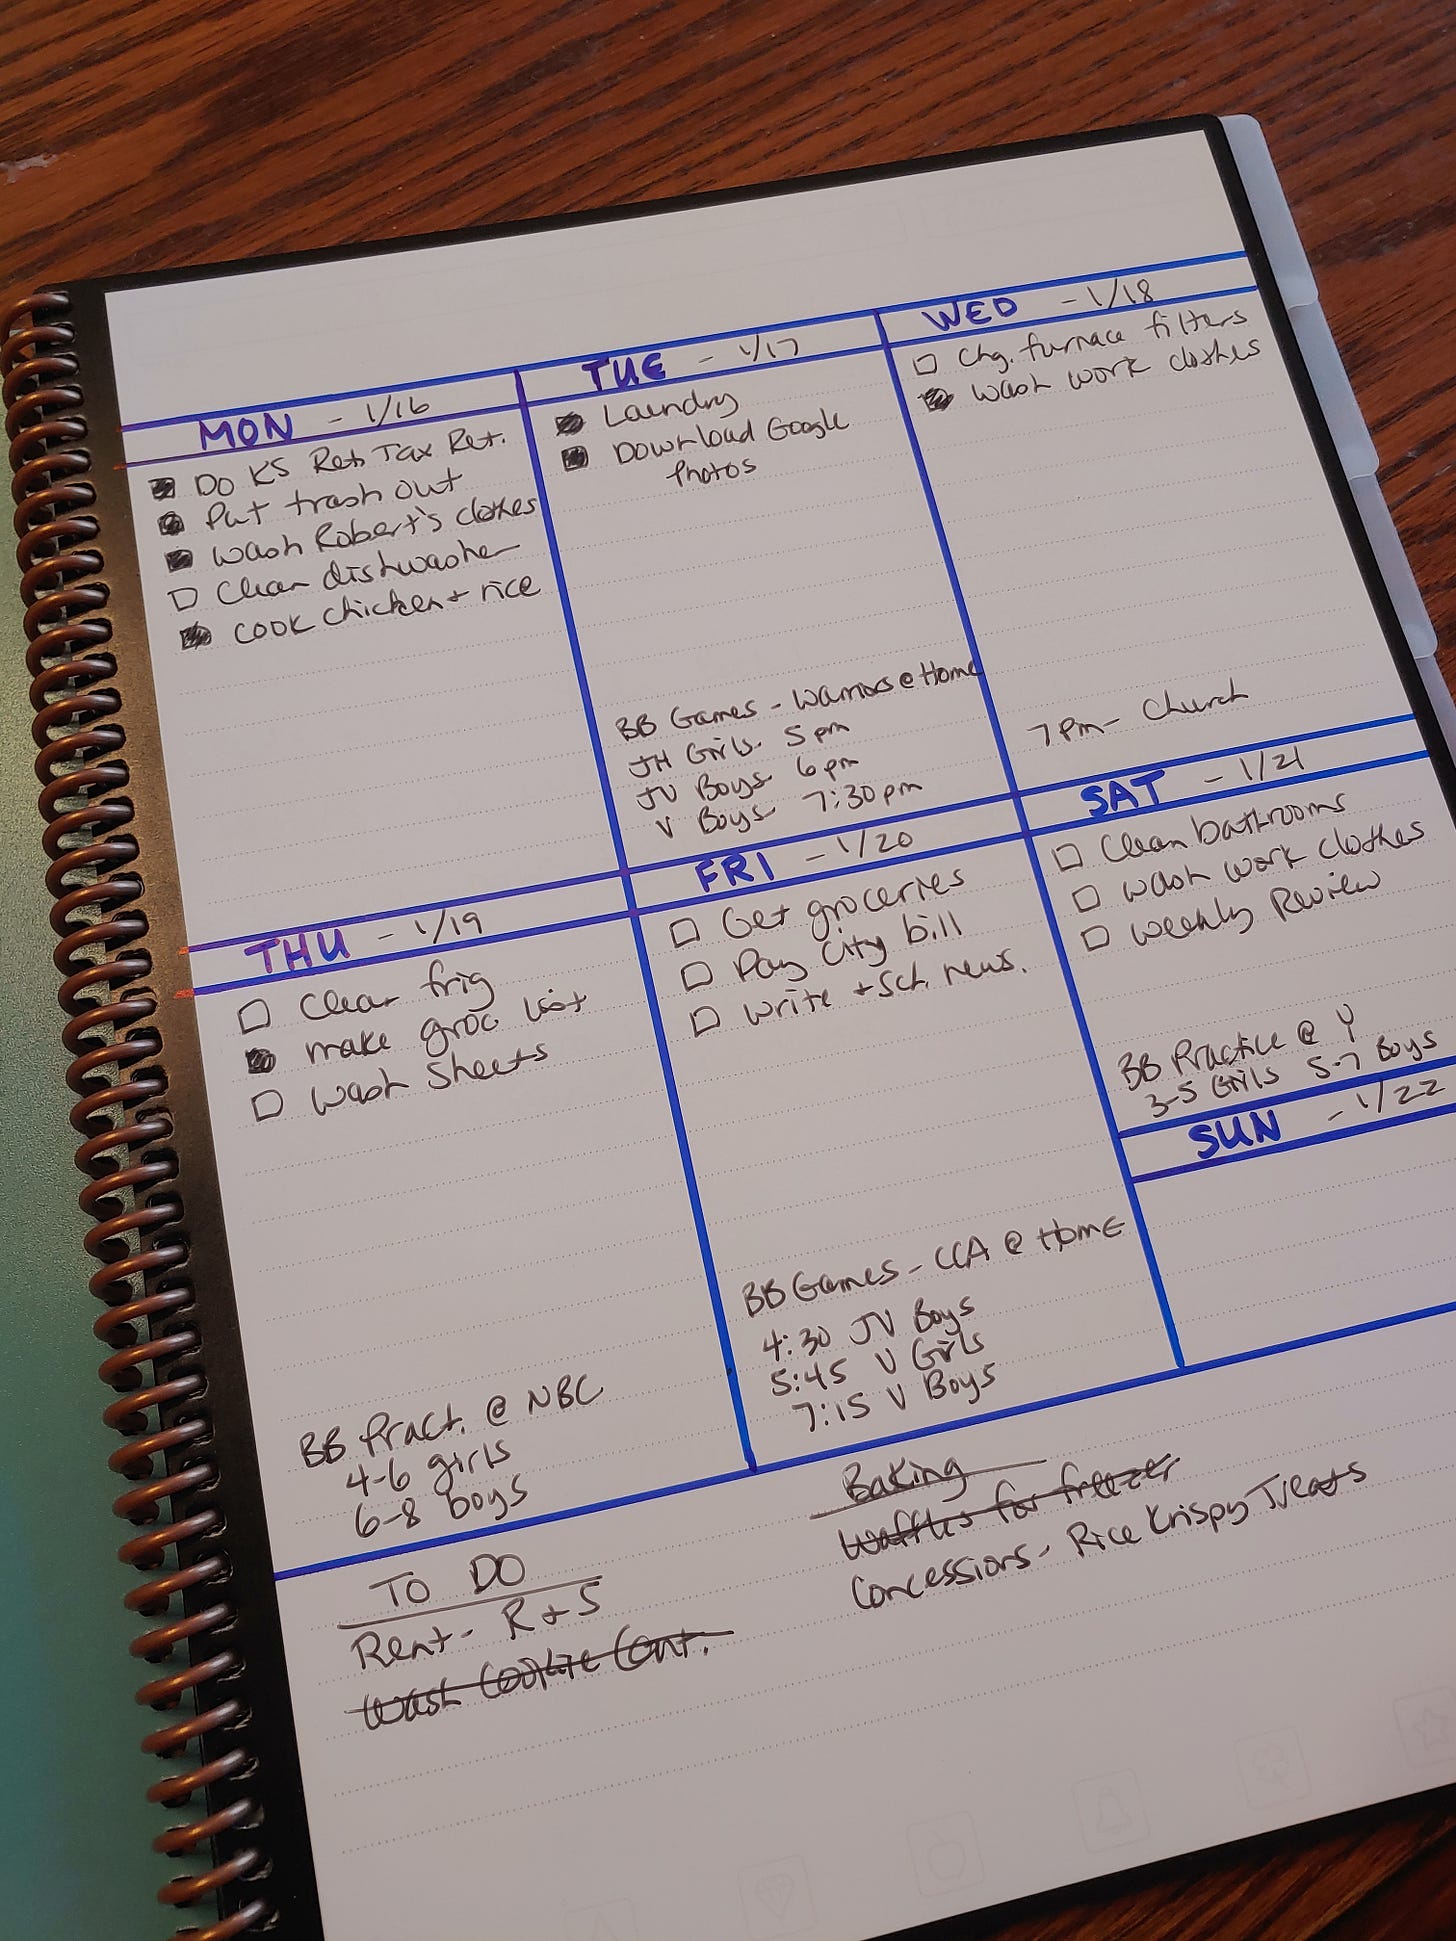 MON - 1/16
DO KS Ret Tax Ret.
Put trash out
wash Robert's clothes
Clean dishwasher
COOK chicken + rice
TUE - 1/17
Laundry
Download Google
Photos
BB Games - Warriors @ Home
JH Girls 5pm
JV Boys 6pm
V Boys 7:30pm
WED - 1/18
Chg. furnace filters
wash work clothes
7pm - Church
THU - 1/19
Clean frig
make groc list
wash sheets
BB Pract. @ NBC
4-6 girls
6-8 boys
FRI - 1/20
Get groceries
Pay City bill
write + Sch. news.
BB Games - CCA @ Home
4:30 JV Boys
5:45 V Girls
7:15 V Boys
SAT - 1/21
Clean bathrooms
wash work clothes
Weekly Review
BB Practice @ Y
3-5 Girls 5-7 Boys
SUN - 1/22
TO DO
Rent - R + S
Wash Cookie Cont.
Baking
Waffles for freezer
Concessions - Rice Krispy Treats